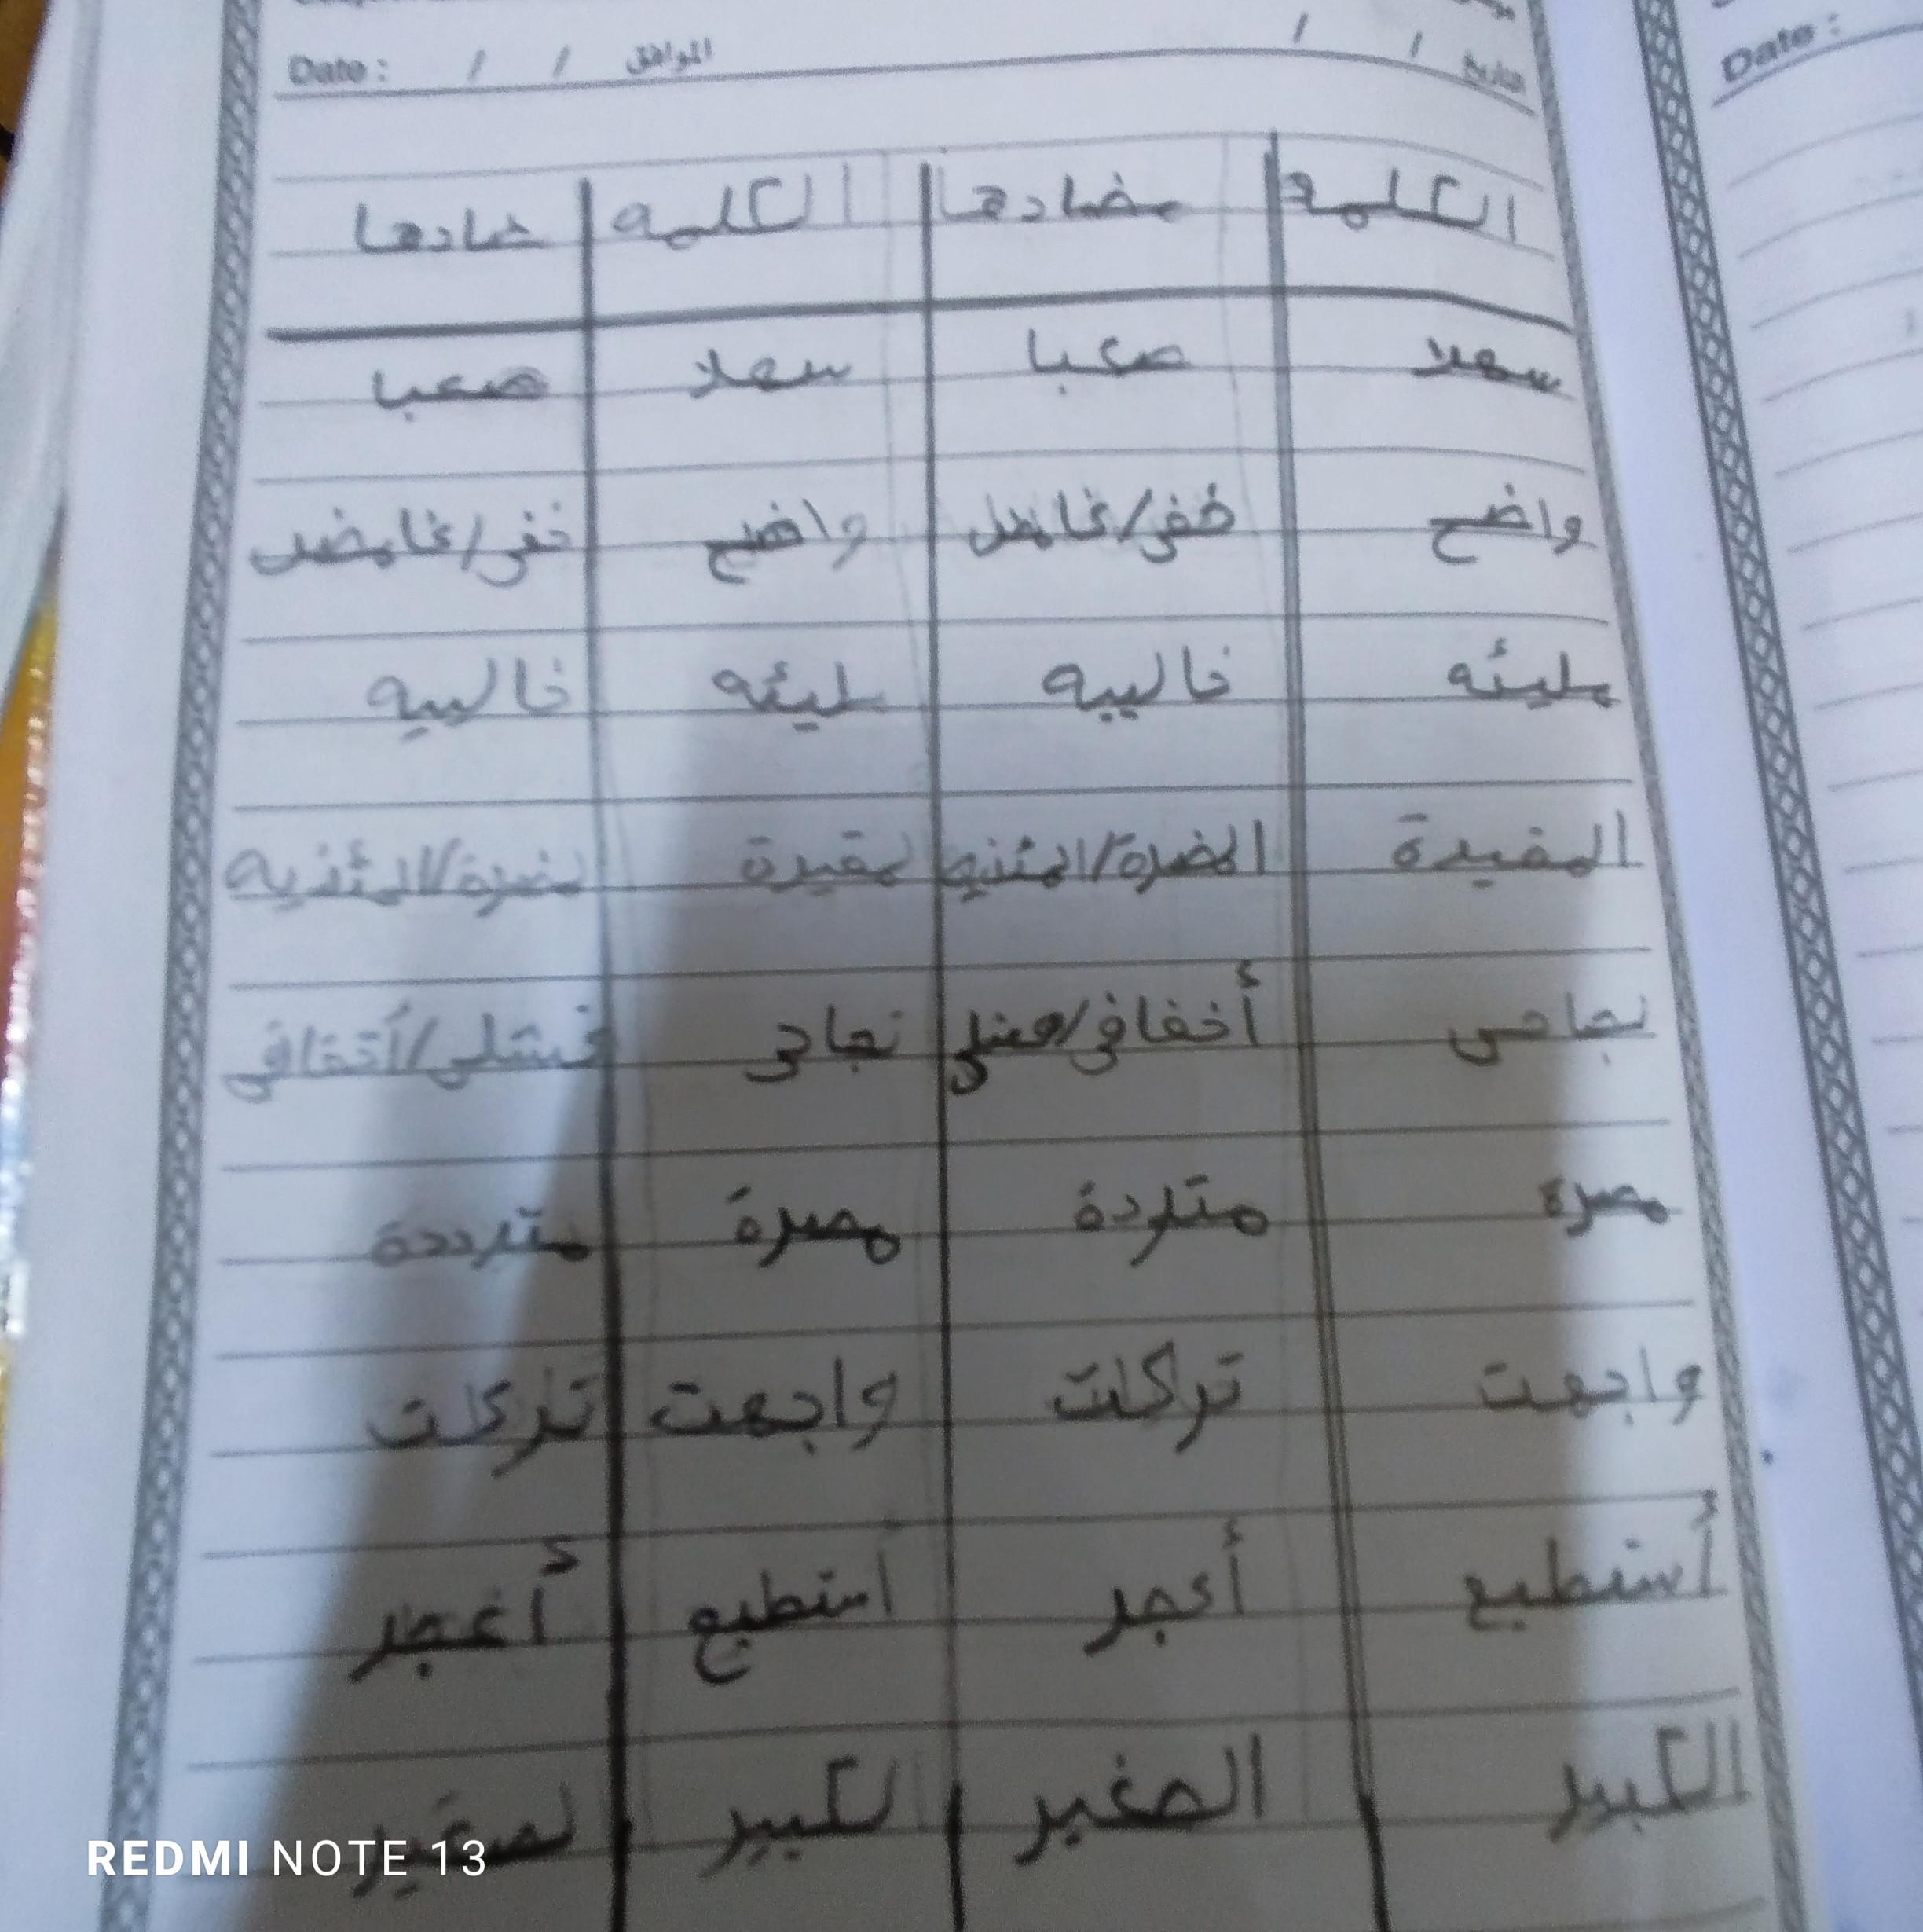 Date : / / الموافق / / التاريخ
Date :
الكلمة مضادها الكلمه ضادها
سهلا صعبا سهلا صعبا
واضح خفي/غامض واضح خفي/غامضه
مليئه خاليه مليئه خالييه
المفيدة المضرة/المئذيه لمقيدة لمضرة/المئذيه
نجاحي أخفافي/فشلي نجاحي فشلي/أخفافي
مصرة متردة مصرة مترددة
واجهت تركت واجهت تركت
أستطيع أعجر استطيع أعجر
الكبير الصغير لكبير لصغير
REDMI NOTE 13